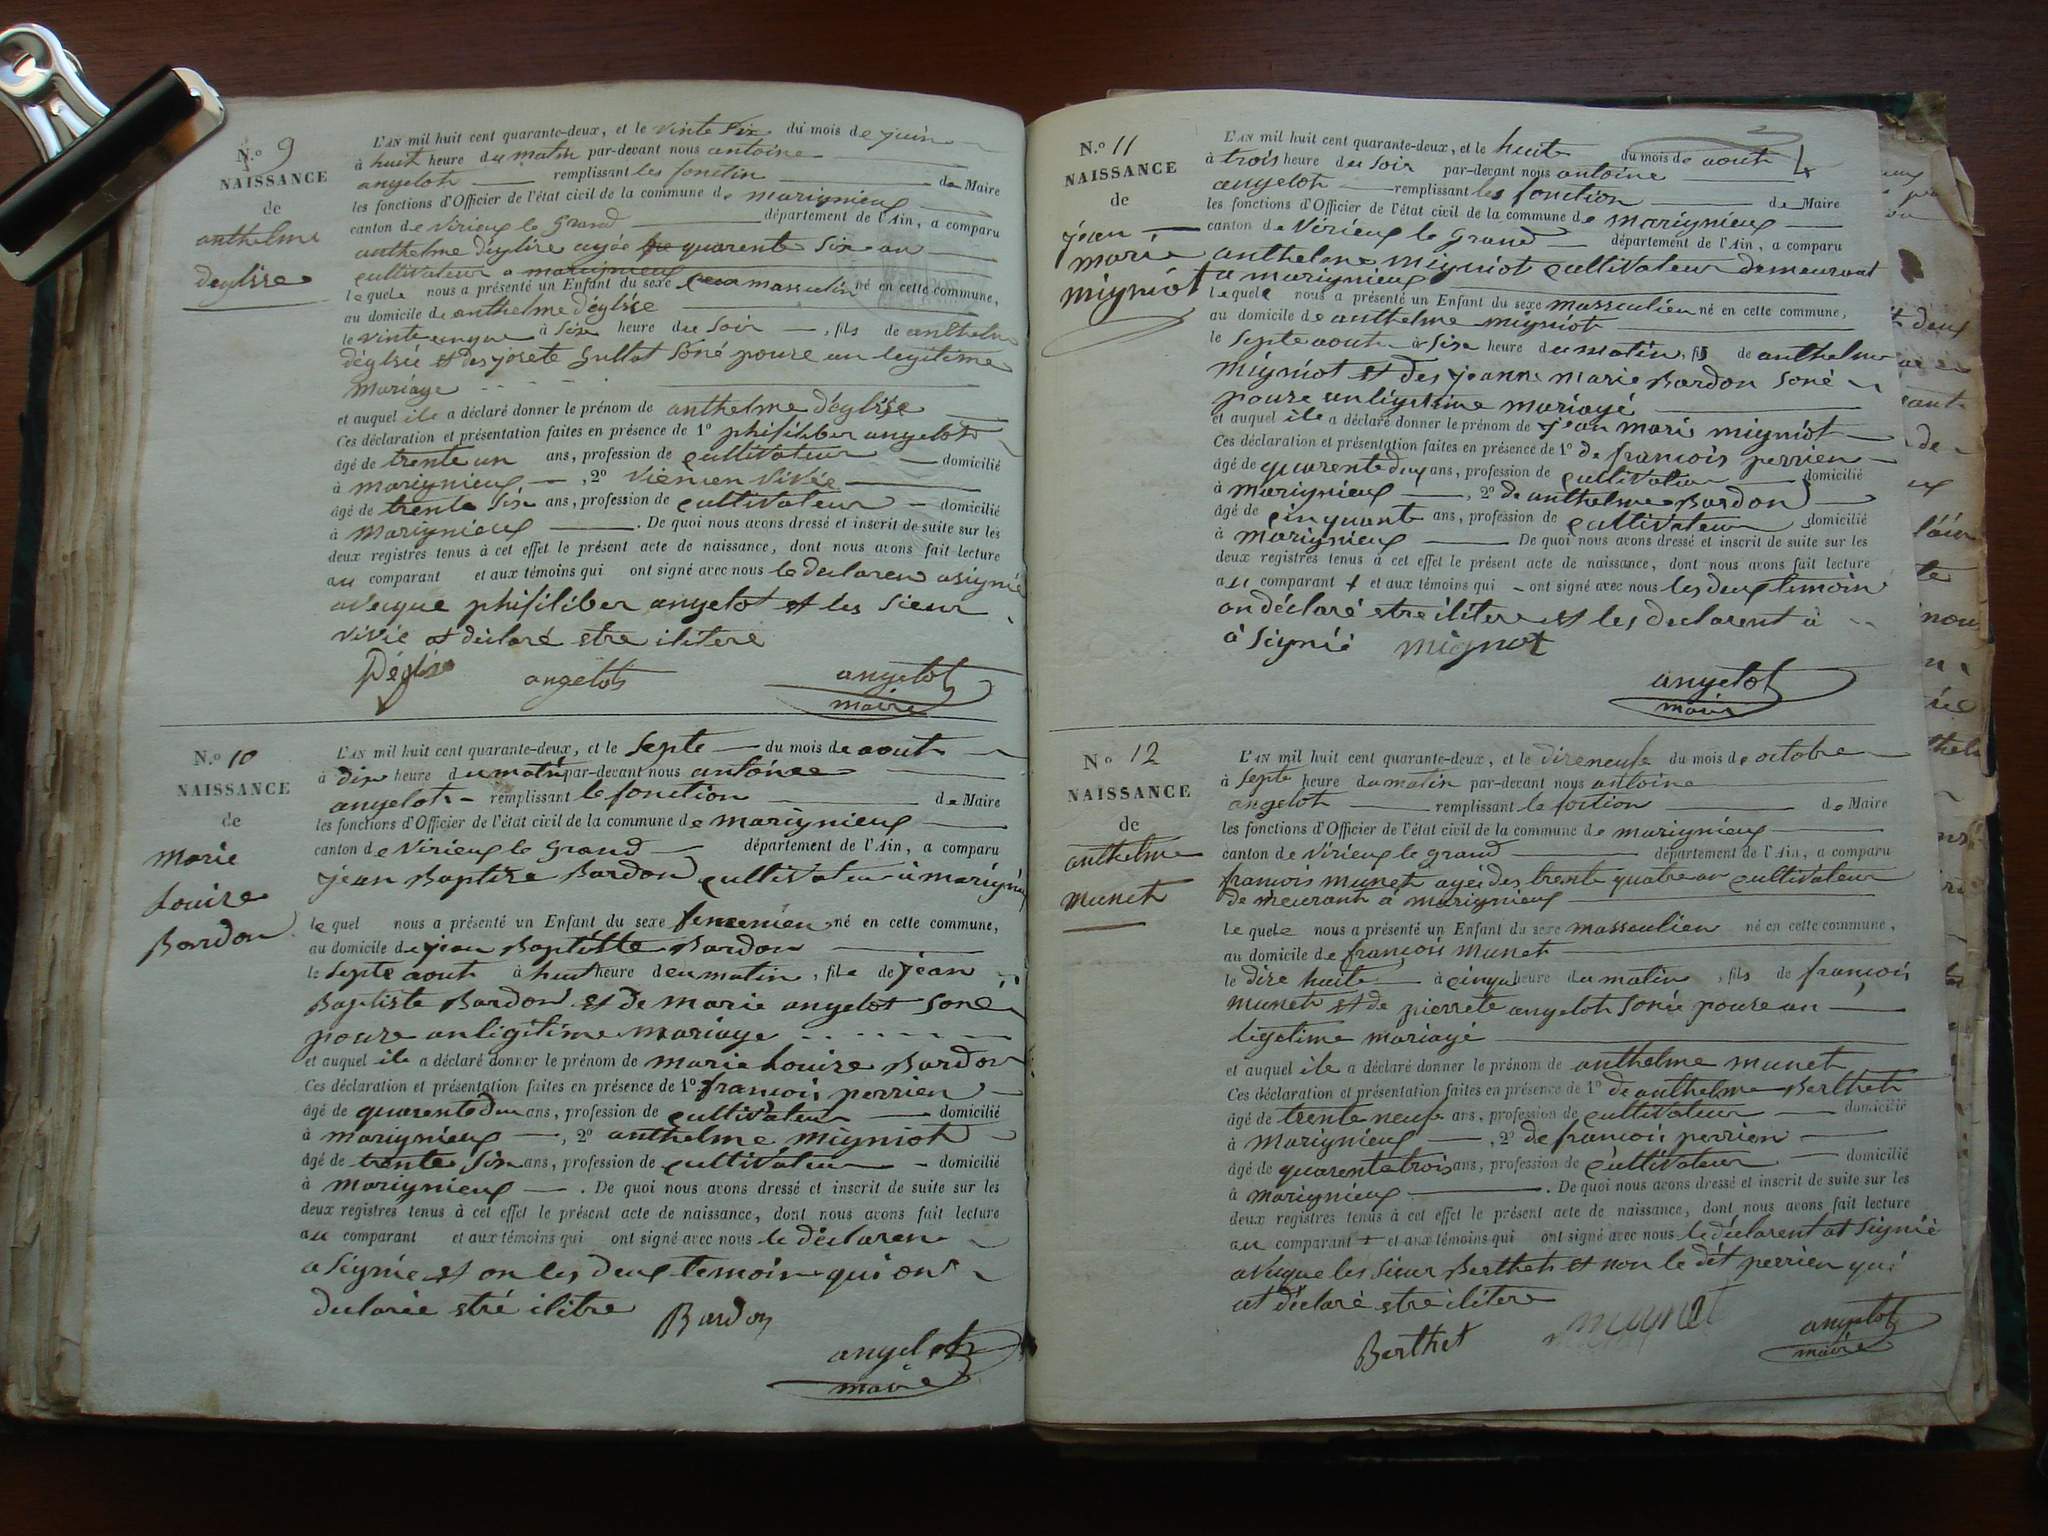 N.o 9
NAISSANCE
de
anthelme
déglise
L'AN mil huit cent quarante-deux, et le vinte six du mois de juin
à huit heure du matin par-devant nous antoine
angelot remplissant les fonctin de Maire
les fonctions d'Officier de l'état civil de la commune de marignieux
canton de Virieux le Grand département de l'Ain, a comparu
anthelme déglise agée quarente six an
cultivateur a marignieux
lequele nous a présenté un Enfant du sexe masculin né en cette commune,
au domicile de anthelme déglise
le vinte cinque à six heure du Soir, fils de anthelme
déglise et des josete Gullot Soné poure un legitime
mariage
et auquel ile a déclaré donner le prénom de anthelme déglise
Ces déclaration et présentation faites en présence de 1º phisiliber angelot
âgé de trente un ans, profession de cultivateur domicilié
à marignieux, 2º Vien en Vivié
âgé de trente six ans, profession de cultivateur domicilié
à Marignieux. De quoi nous avons dressé et inscrit de suite sur les
deux registres tenus à cet effet le présent acte de naissance, dont nous avons fait lecture
au comparant et aux témoins qui ont signé avec nous le declaren asignié
avecque phisiliber angelot et les Sieur
Vivié at déclaré stre ilitere
Déglise angelot angelot
maire
N.o 10
NAISSANCE
de
Marie
Louise
Bardon
L'AN mil huit cent quarante-deux, et le Septe du mois de aout
à dix heure du matin par-devant nous antoinee
angelot remplissant le fonction de Maire
les fonctions d'Officier de l'état civil de la commune de marignieux
canton de Virieux le Grand département de l'Ain, a comparu
jean Baptise Bardon cultivateur à marignieux
lequel nous a présenté un Enfant du sexe femenien né en cette commune,
au domicile de jean Baptiste Bardon
le Septe aout à huit heure deu matin, file de jean
Baptiste Bardon et de marie angelot Soné
poure an ligitime mariage
et auquel ile a déclaré donner le prénom de marie Louise Bardon
Ces déclaration et présentation faites en présence de 1º francois perrien
âgé de quarente deu ans, profession de cultivateur domicilié
à marignieux, 2º anthelme migniot
âgé de trente six ans, profession de cultivateur domicilié
à marignieux. De quoi nous avons dressé et inscrit de suite sur les
deux registres tenus à cet effet le présent acte de naissance, dont nous avons fait lecture
au comparant et aux témoins qui ont signé avec nous le déclaren
a Signie et on les deux temoin qui on
declarée stré ilitre Bardon
angelot
maire
N.o 11
NAISSANCE
de
jean
marie
migniot
L'AN mil huit cent quarante-deux, et le huit du mois de aout
à trois heure du Soir par-devant nous antoine
angelot remplissant les fonction de Maire
les fonctions d'Officier de l'état civil de la commune de marignieux
canton de Virieux le Grand département de l'Ain, a comparu
anthelme migniot cultivateur demeurant
a marignieux
lequele nous a présenté un Enfant du sexe massculien né en cette commune,
au domicile de anthelme migniot
le Septe aout à Six heure du matin, fils de anthelme
migniot et des jeanne marie Bardon Soné
poure un ligitime mariagé
et auquel ile a déclaré donner le prénom de jean mari migniot
Ces déclaration et présentation faites en présence de 1º de francois perrien
âgé de quarente deux ans, profession de cultivateur domicilié
à marignieux, 2º de anthelme Bardon
âgé de cinquante ans, profession de cultivateur domicilié
à marignieux De quoi nous avons dressé et inscrit de suite sur les
deux registres tenus à cet effet le présent acte de naissance, dont nous avons fait lecture
au comparant et aux témoins qui ont signé avec nous les deux temoin
on déclaré stre ilitere et les declarent à
à Signié mignot
angelot
maire
N.o 12
NAISSANCE
de
anthelme
munet
L'AN mil huit cent quarante-deux, et le direneufe du mois de octobre
à Septe heure du matin par-devant nous antoine
angelot remplissant le foction de Maire
les fonctions d'Officier de l'état civil de la commune de marignieux
canton de Virieux le grand département de l'Ain, a comparu
francois munet agée des trente quatre an cultivateur
de meurant a marignieux
lequele nous a présenté un Enfant du sexe massculien né en cette commune,
au domicile de françois munet
le dire huite à cinque heure du matin, fils de françois
munet et de pierrete angelot Sonée poure an
legetime mariagé
et auquel ile a déclaré donner le prénom de anthelme munet
Ces déclaration et présentation faites en présence de 1º de anthelme Berthet
âgé de trente neufe ans, profession de cultivateur domicilié
à Marignieux, 2º de francois perrien
âgé de quarente trois ans, profession de cultivateur domicilié
à marignieux. De quoi nous avons dressé et inscrit de suite sur les
deux registres tenus à cet effet le présent acte de naissance, dont nous avons fait lecture
au comparant et aux témoins qui ont signé avec nous le déclarent at Signié
aveque les Sieur Berthet et non le dit perrien qui
at déclaré stre ilitere
Berthet angelot
maire